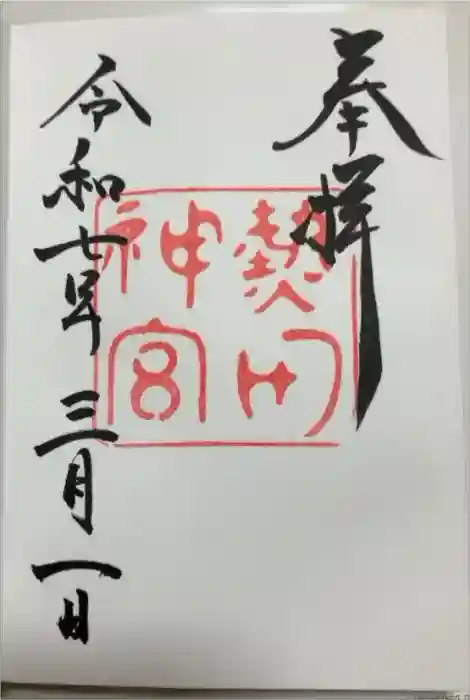 奉拝
熱田
神宮
令和七年三月一日